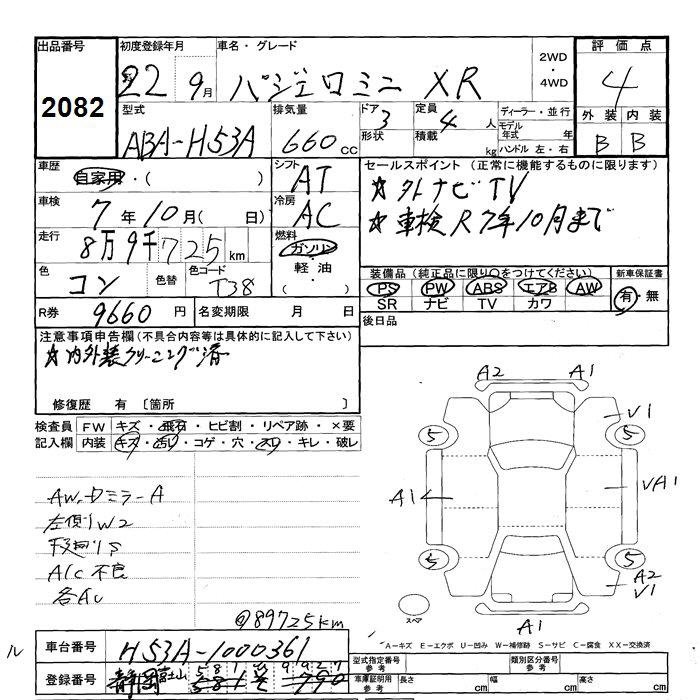 出品番号 初度登録年月 車名・グレード 2WD・4WD 評価点
2082 22 9月 パジェロミニ XR 4
型式 排気量 ドア 定員 ディーラー・並行 外装 内装
ABA-H53A 660cc 3 4人 モデル年式 年 B B
形状 積載 kg ハンドル 左・右
車歴 シフト セールスポイント (正常に機能するものに限ります)
自家用・( ) AT ☆外ナビTV
車検 7年10月( 日) 冷房 AC ☆車検R7年10月まで
走行 8万9千725km 燃料 ガソリン・軽油・( )
色 コン 色替 色コード T38
装備品(純正品に限り○をつけてください) 新車保証書
PS PW ABS エアB AW 有・無
SR ナビ TV カワ
R券 9660円 名変期限 月 日 後日品
注意事項申告欄(不具合内容等は具体的に記入して下さい)
☆内外装クリーニング済
修復歴 有〔箇所 〕
検査員 FW キズ・飛石・ヒビ割・リペア跡・×要
記入欄 内装 キズ・汚レ・コゲ・穴・スレ・キレ・破レ
A2 A1
V1
5 5
A1 VA1
5 5
A2
V1
スペア
A1
AW、ドミラーA
左側W2
下廻りS
A/C不良
各AU
@89725km
A－キズ E－エクボ U－凹み W－補修跡 S－サビ C－腐食 XX－交換済
ル 車台番号 H53A-1000361
型式指定番号 参考 類別区分番号 参考
登録番号
車庫証明用 参考 長さ cm 幅 cm 高さ cm